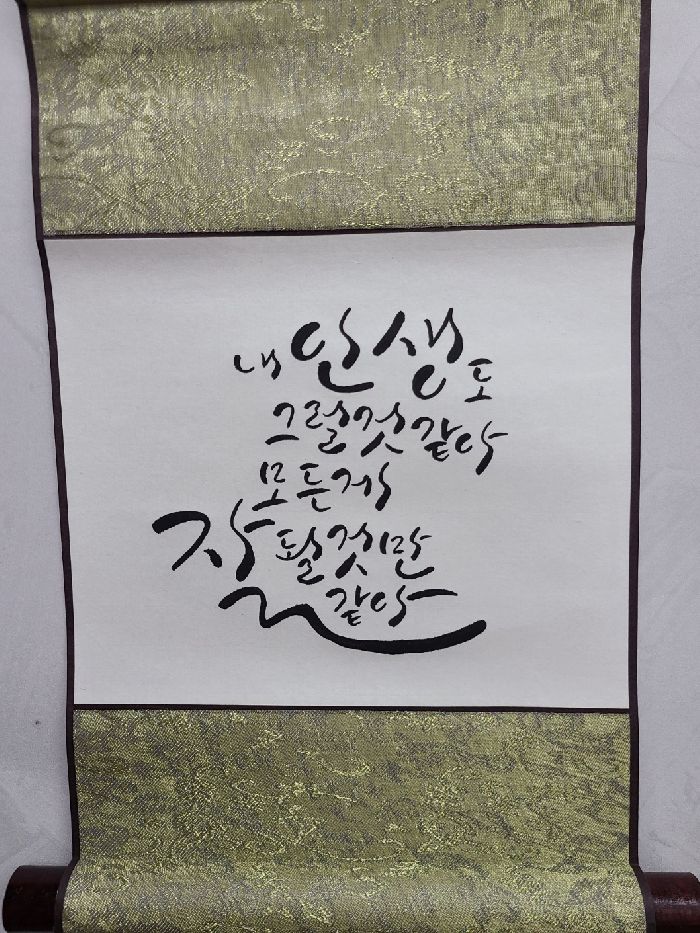 내 인생도
그럴것 같다
모든게
잘 될것만
같다